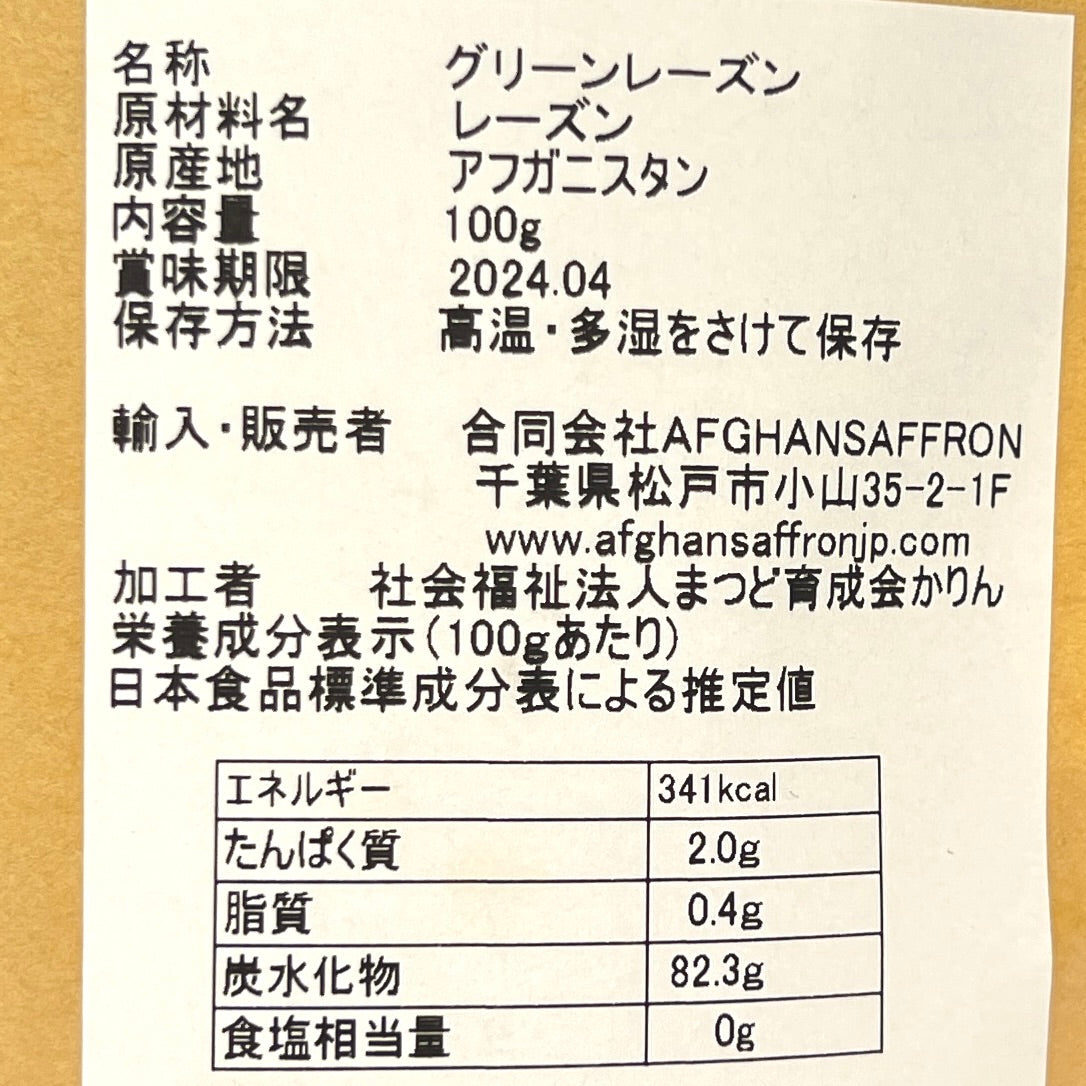 名称 グリーンレーズン
原材料名 レーズン
原産地 アフガニスタン
内容量 100g
賞味期限 2024.04
保存方法 高温・多湿をさけて保存
輸入・販売者 合同会社AFGHANSAFFRON
千葉県松戸市小山35-2-1F
www.afghansaffronjp.com
加工者 社会福祉法人まつど育成会かりん
栄養成分表示(100gあたり)
日本食品標準成分表による推定値
エネルギー 341kcal
たんぱく質 2.0g
脂質 0.4g
炭水化物 82.3g
食塩相当量 0g